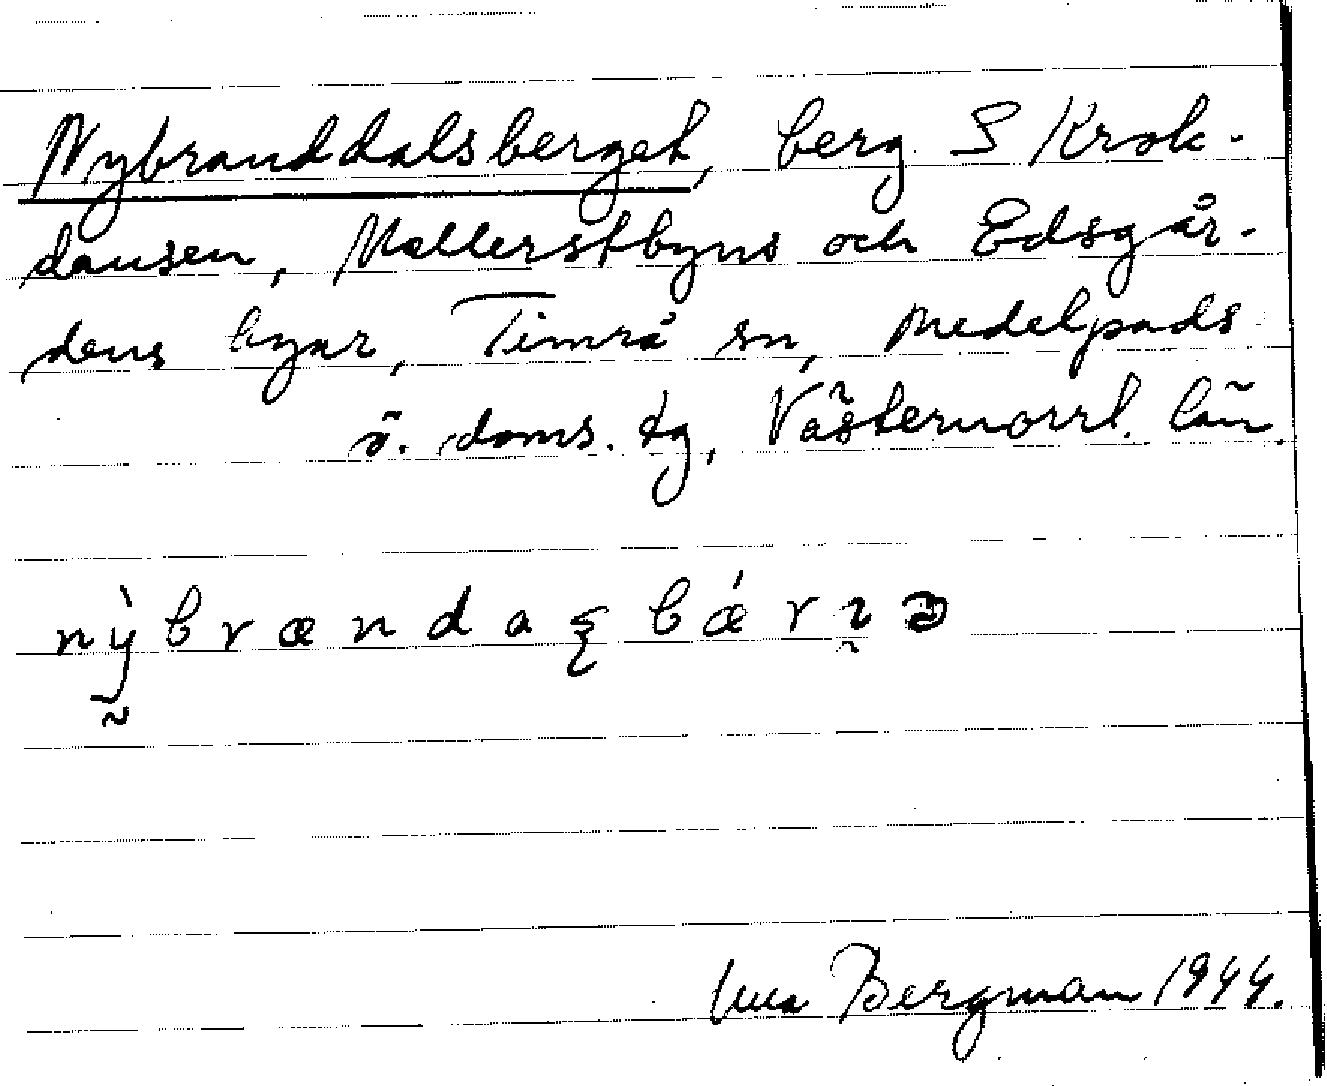 Nybranddalsberget, berg S Krok-
dansen, Mellerstbyns och Edsgår-
dens byar, Timrå sn, Medelpads
ö. doms. tg, Västernorrl. län.
nỳ̰brændaʂbǽrɿə
Bergman 1944.